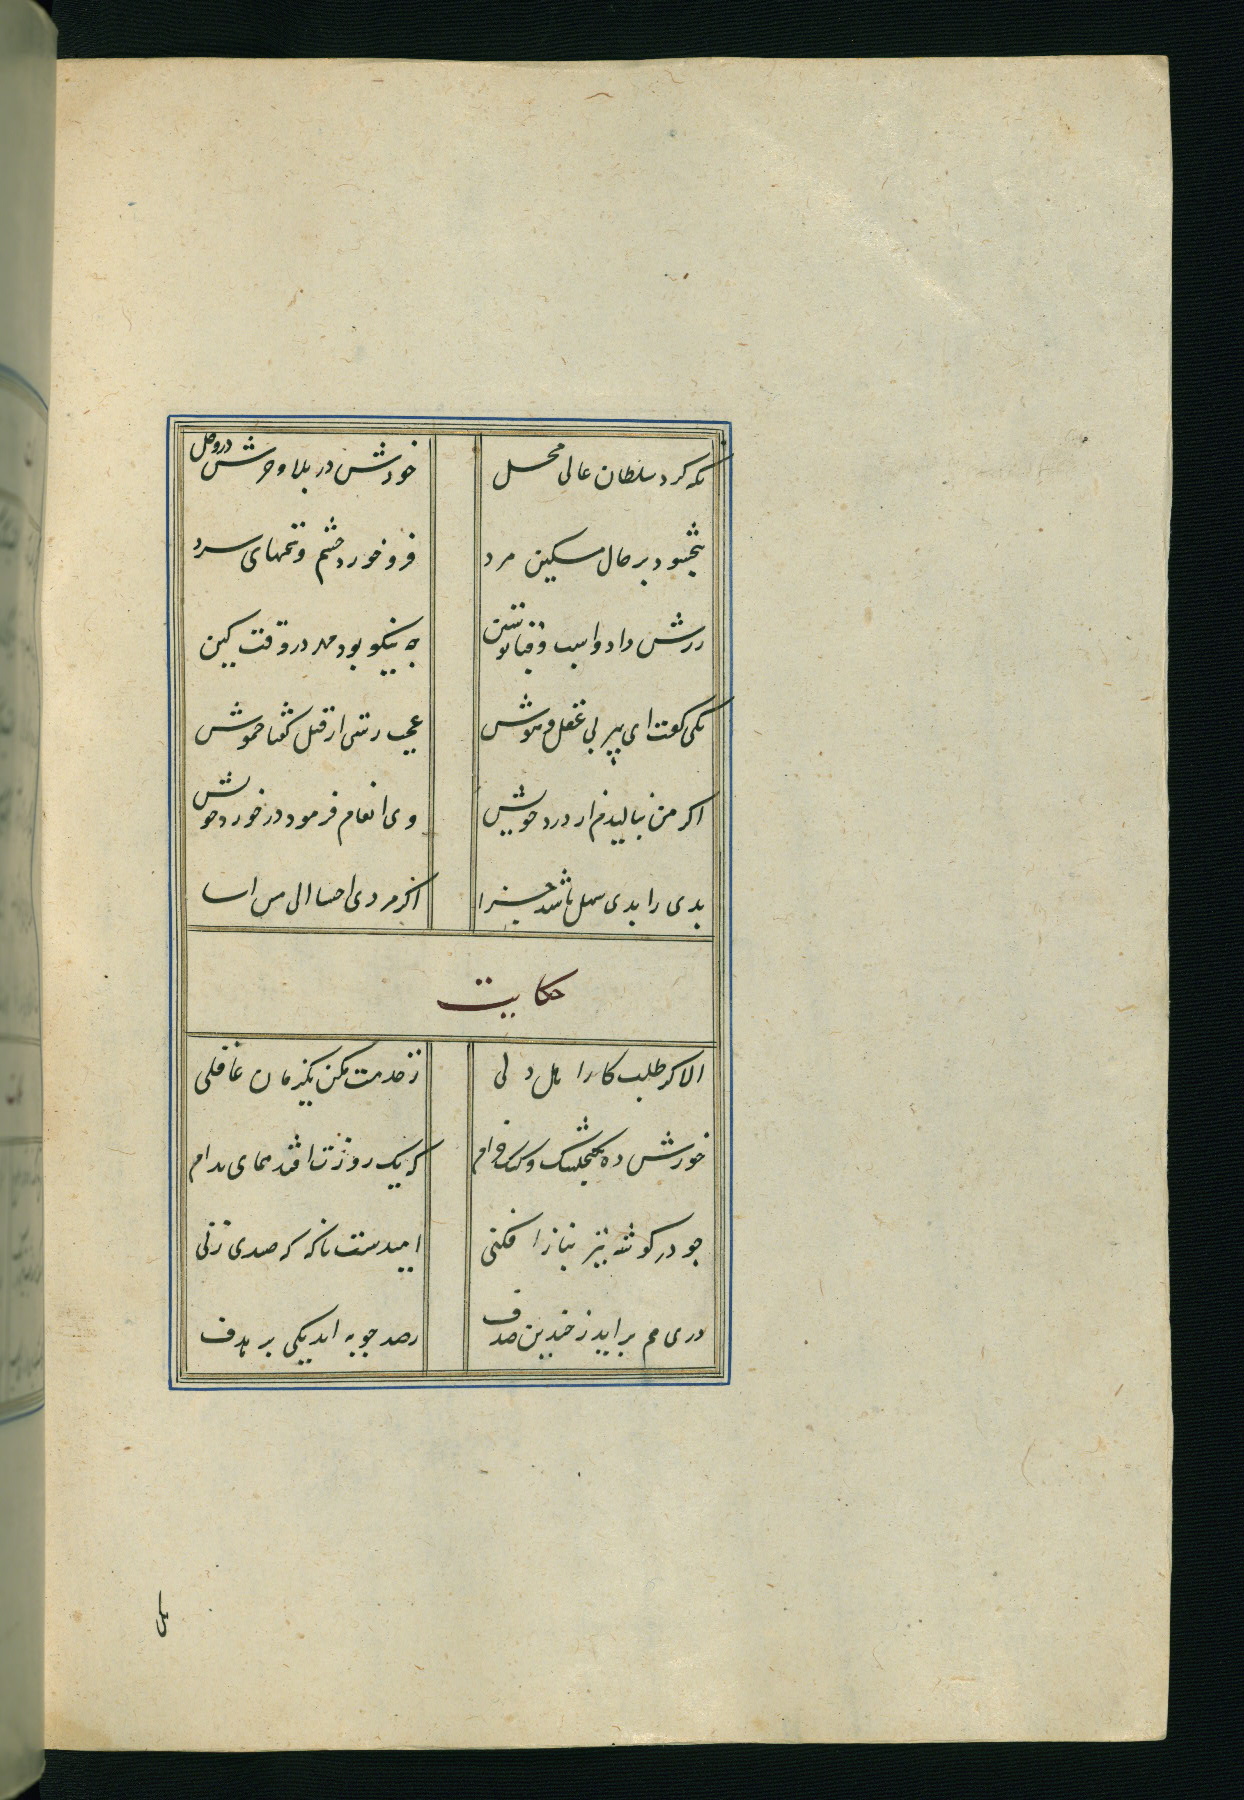 نکه کرد سلطان عالی محل
خودش در بلا و خرش در وحل
ببخشود بر حال مسکین مرد
فرو خورد خشم و سخنهای سرد
زرش داد و اسب و قبا پوستین
چه نیکو بود مهر در وقت کین
یکی گفت ای پیر بی عقل و هوش
عجب رستی از قتل گفتا خموش
اگر من بنالیدم از درد خویش
وی انعام فرمود در خورد خویش
بدی را بدی سهل باشد جزا
اگر مردی احسن الی من اسا
حکایت
الا گر طلبکار اهل دلی
ز خدمت مکن یکزمان غافلی
خورش ده بگنجشک و کبک و حمام
که یک روزت افتد همای بدام
چو در گوشه تیر نیاز افکنی
امیدست ناگه که صیدی زنی
دری هم براید ز چندین صدف
ز صد چوبه اید یکی بر هدف
یکی